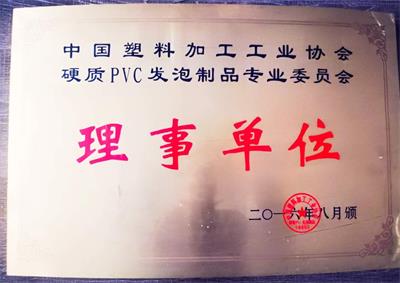 中国塑料加工工业协会
硬质PVC发泡制品专业委员会
理事单位
二〇一六年八月颁